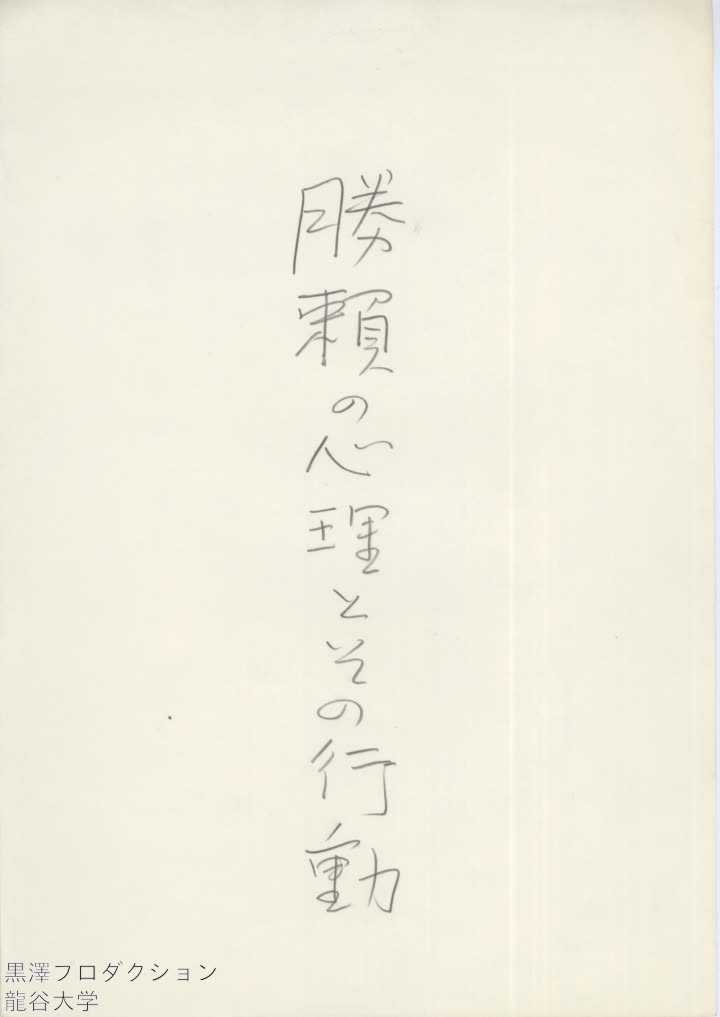 勝頼の心理とその行動
黒澤プロダクション
龍谷大学